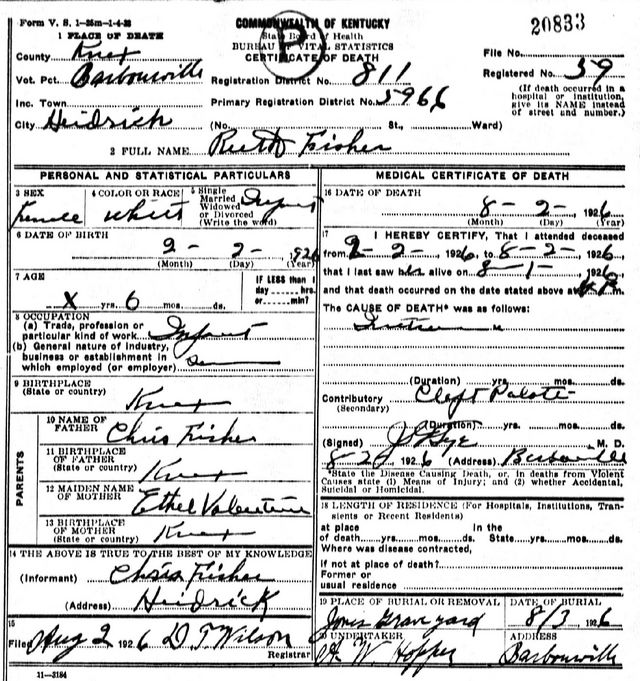 Form V. S. 1-25m-1-4-26
COMMONWEALTH OF KENTUCKY
20833
1 PLACE OF DEATH
State Board of Health
BUREAU OF VITAL STATISTICS
CERTIFICATE OF DEATH
P
County Knox
File No.
Vot. Pct. Barbourville
Registration District No. 811
Registered No. 59
Inc. Town
Primary Registration District No. 5966
(If death occurred in a hospital or institution, give its NAME instead of street and number.)
City Heidrick (No. St., Ward)
2 FULL NAME Ruth Fisher
PERSONAL AND STATISTICAL PARTICULARS
3 SEX Female
4 COLOR OR RACE White
5 Single Married Widowed or Divorced (Write the word) Infant
6 DATE OF BIRTH
2- 2- 1926
(Month) (Day) (Year)
7 AGE
X yrs. 6 mos. ds.
IF LESS than 1 day hrs. or min?
8 OCCUPATION
(a) Trade, profession or particular kind of work Infant
(b) General nature of industry, business or establishment in which employed (or employer)
9 BIRTHPLACE
(State or country) Knox
PARENTS
10 NAME OF FATHER Chris Fisher
11 BIRTHPLACE OF FATHER
(State or country) Knox
12 MAIDEN NAME OF MOTHER Ethel Valentine
13 BIRTHPLACE OF MOTHER
(State or country) Knox
14 THE ABOVE IS TRUE TO THE BEST OF MY KNOWLEDGE
(Informant) Chris Fisher
(Address) Heidrick
15
Filed Aug 2 1926 D T Wilson
Registrar
11-3184
MEDICAL CERTIFICATE OF DEATH
16 DATE OF DEATH
8- 2- , 1926
(Month) (Day) (Year)
17 I HEREBY CERTIFY, That I attended deceased
from 2-2- 1926, to 8-2- , 1926
that I last saw her alive on 8-1- , 1926
and that death occurred on the date stated above at
The CAUSE OF DEATH* was as follows:
(Duration) yrs. mos. ds.
Contributory Cleft Palate
(Secondary)
(Duration) yrs. mos. ds.
(Signed) M. D.
8-2 1926 (Address) Barbourville
*State the Disease Causing Death, or, in deaths from Violent
Causes state (1) Means of Injury; and (2) whether Accidental,
Suicidal or Homicidal.
18 LENGTH OF RESIDENCE (For Hospitals, Institutions, Transients or Recent Residents)
at place of death yrs. mos. ds. In the State yrs. mos. ds.
Where was disease contracted,
if not at place of death?
Former or usual residence
19 PLACE OF BURIAL OR REMOVAL
DATE OF BURIAL
Jones Graveyard
8/3 1926
20 UNDERTAKER
ADDRESS
W. Hopper
Barbourville